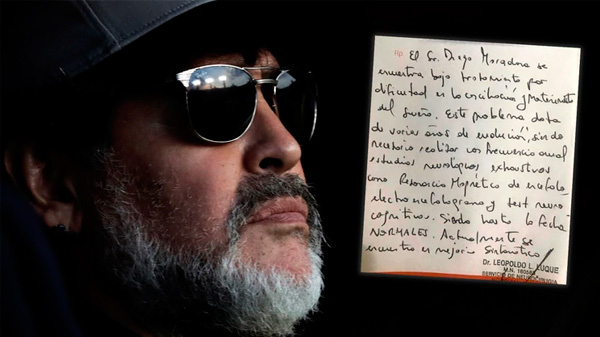 Rp El Sr. Diego Maradona se
encuentra bajo tratamiento por
dificultad en la conciliación y Mantenimiento
del sueño. Este problema data
de varios años de evolución, siendo
necesario realizar con frecuencia anual
estudios neurológicos exhaustivos
como Resonancia Magnética de encéfalo
electroencefalograma y test neuro
cognitivos. Siendo hasta la fecha
NORMALES. Actualmente se
encuentra en mejoría sintomática
Dr. LEOPOLDO L. LUQUE
M.N.
SERVICIO DE